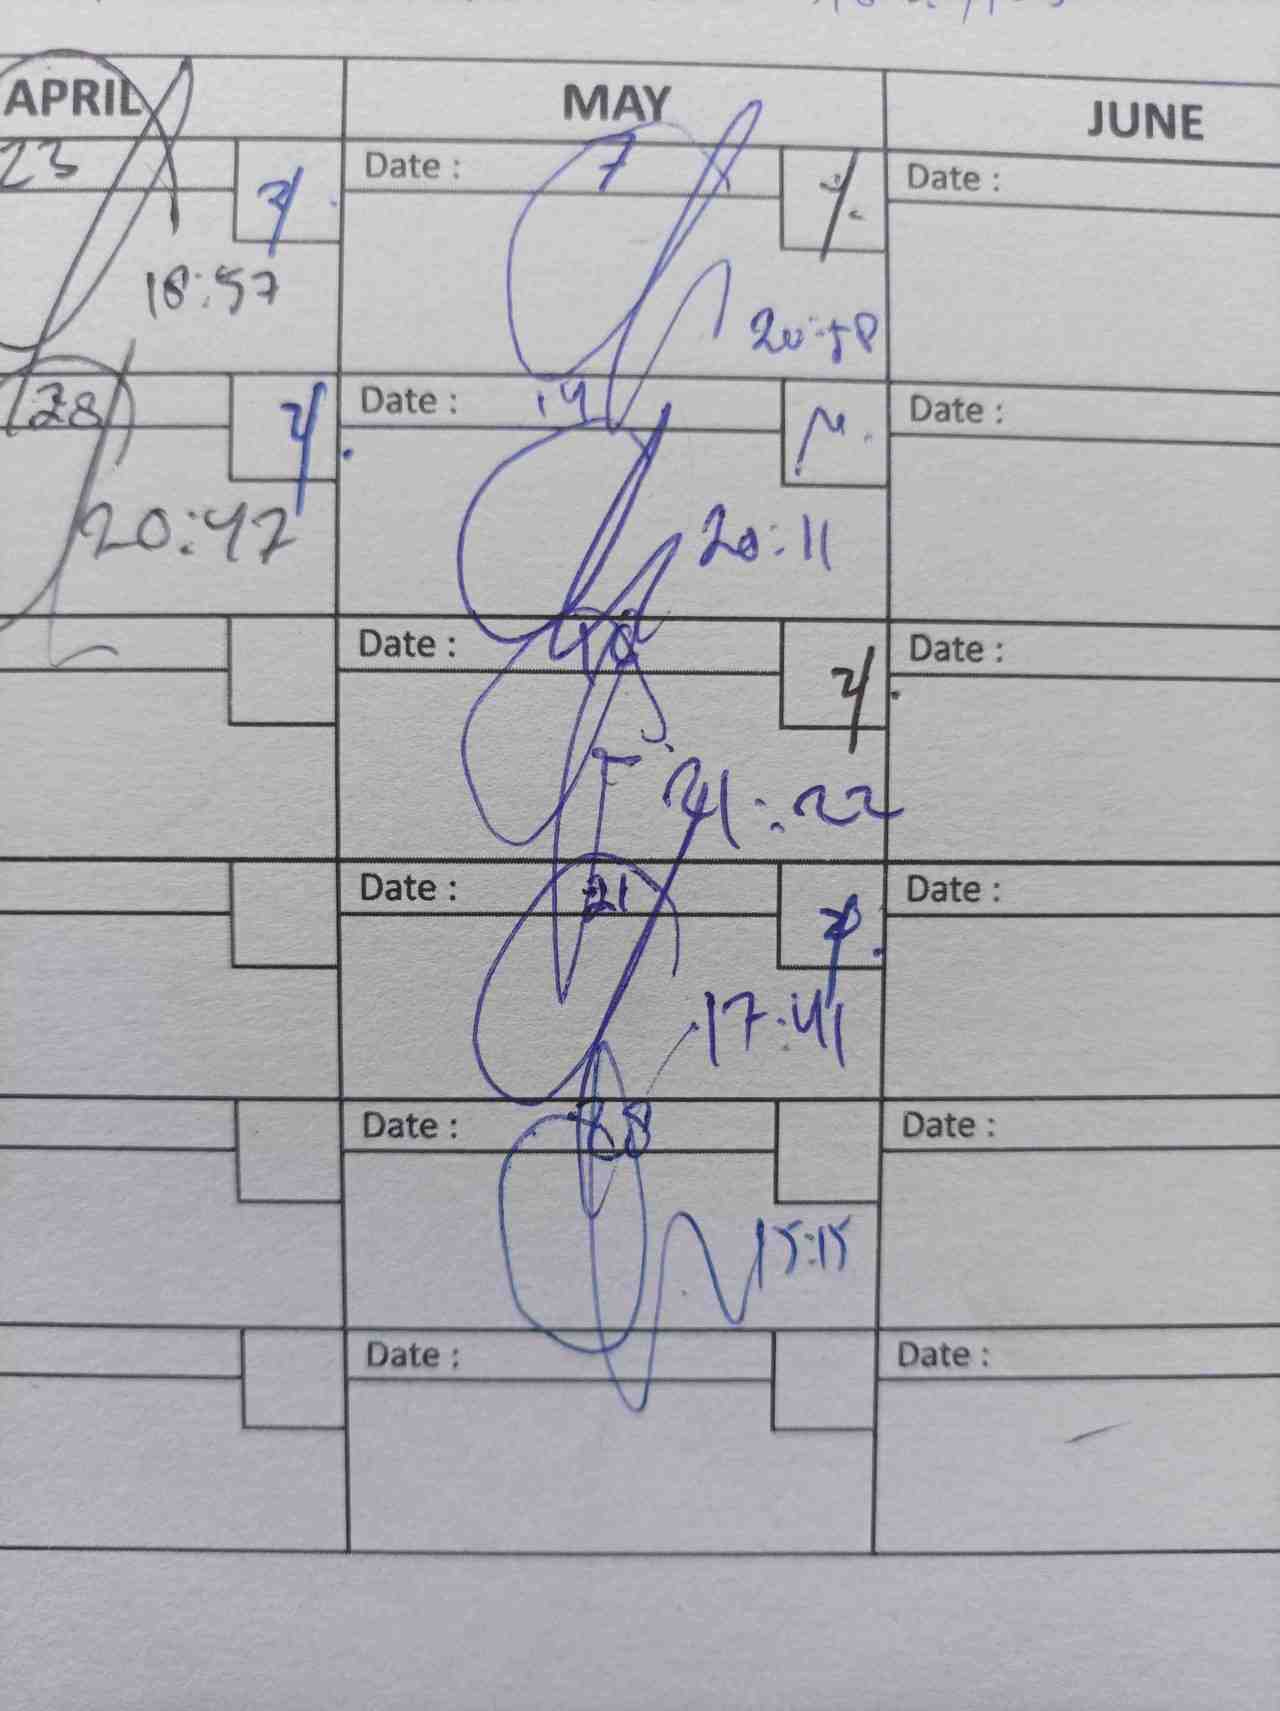 APRIL MAY JUNE
23 Date : 7 Date :
18:57 20:58
28 Date : 14 Date :
20:47 20:11
Date : Date :
21:22
Date : 21 Date :
17:41
Date : 28 Date :
15:15
Date : Date :